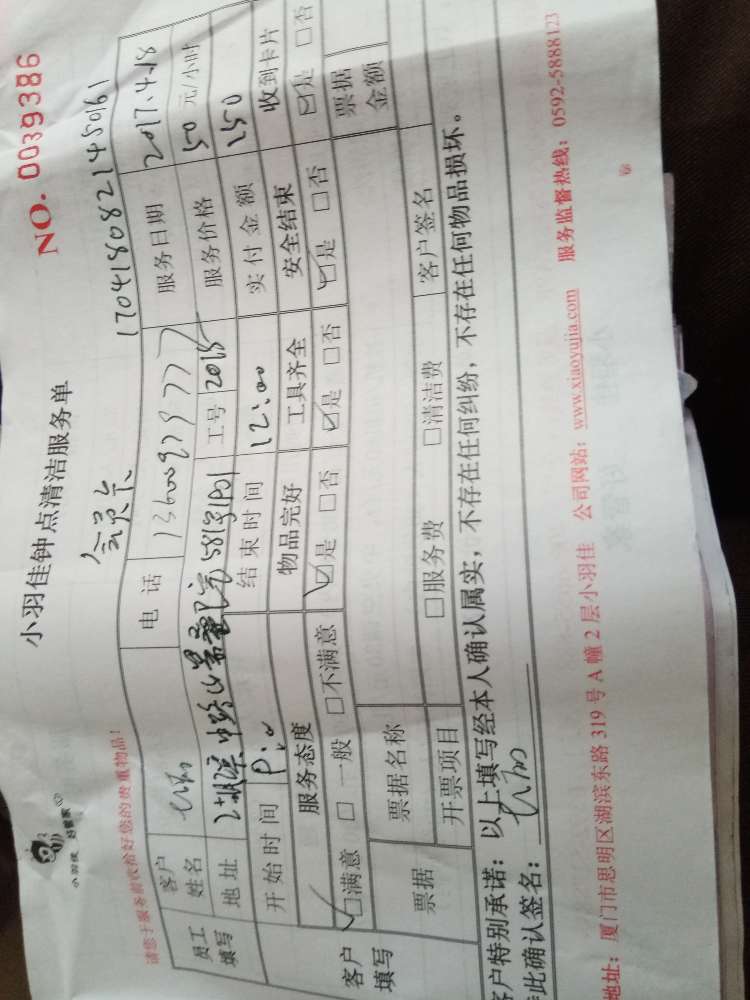 小羽佳 好管家
小羽佳钟点清洁服务单
NO. 0039386
会员卡
1704180821450161
请您于服务前收拾好您的贵重物品!
员工填写
客户姓名
电话 13600979777
服务日期 2017.4.18
地址
581号1901
工号 2015
服务价格 50 元/小时
开始时间
结束时间 12:00
实付金额 150
客户填写
服务态度 物品完好 工具齐全 安全结束 收到卡片
☑满意 □一般 □不满意 ☑是 □否 ☑是 □否 ☑是 □否 ☑是 □否
票据 票据名称 票据金额
开票项目 □服务费 □清洁费 客户签名
客户特别承诺:以上填写经本人确认属实,不存在任何纠纷,不存在任何物品损坏。
此确认签名:
地址:厦门市思明区湖滨东路319号A幢2层小羽佳 公司网站:www.xiaoyujia.com 服务监督热线:0592-5888123